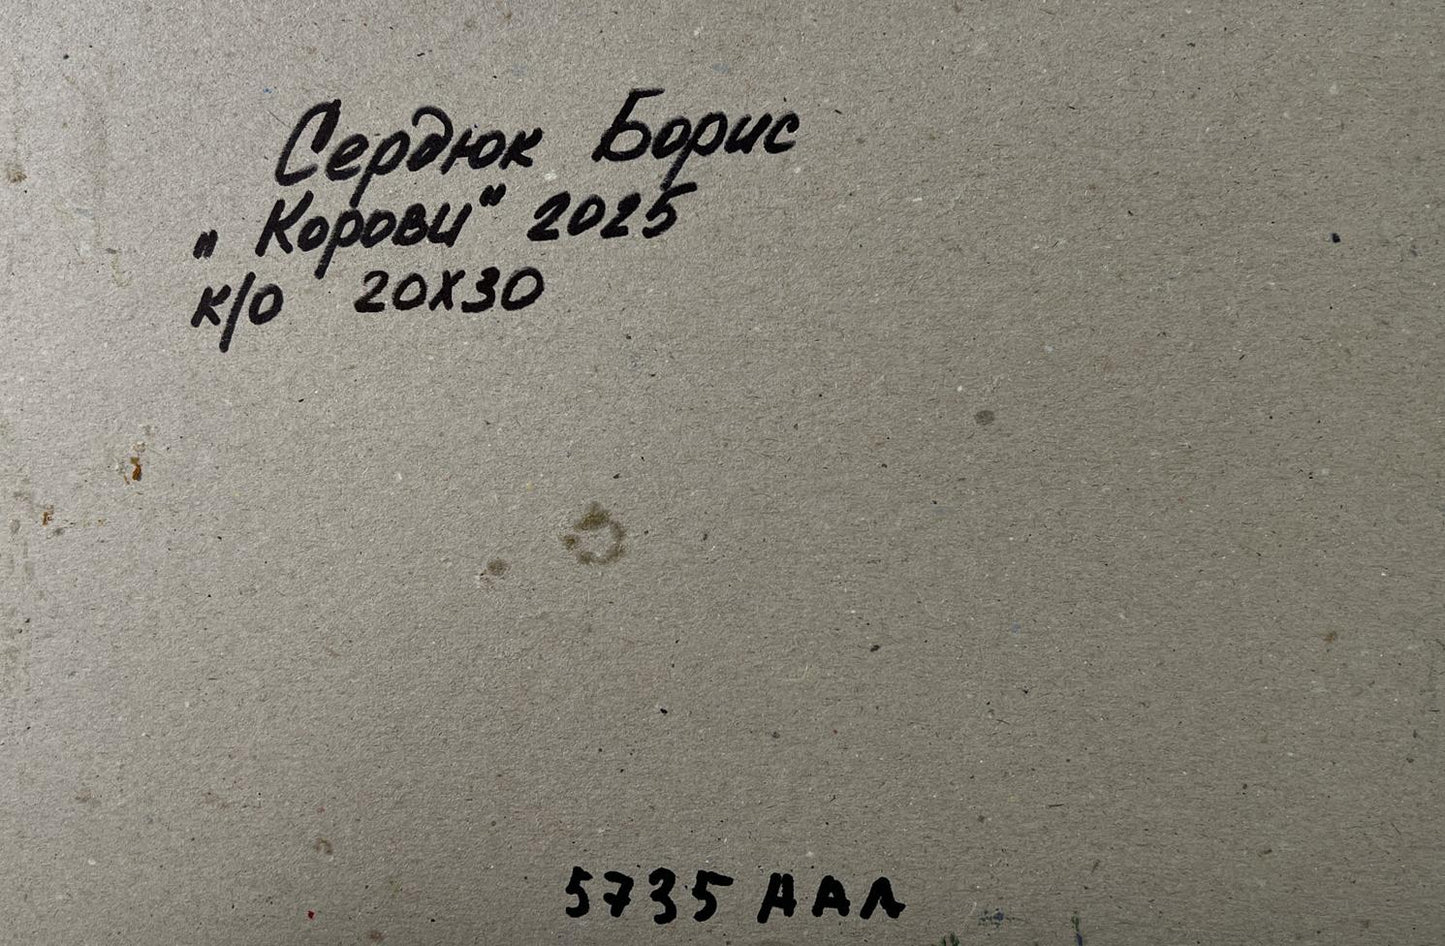 Сердюк Борис
„Корови" 2025
к/о 20х30
5735 ДАЛ